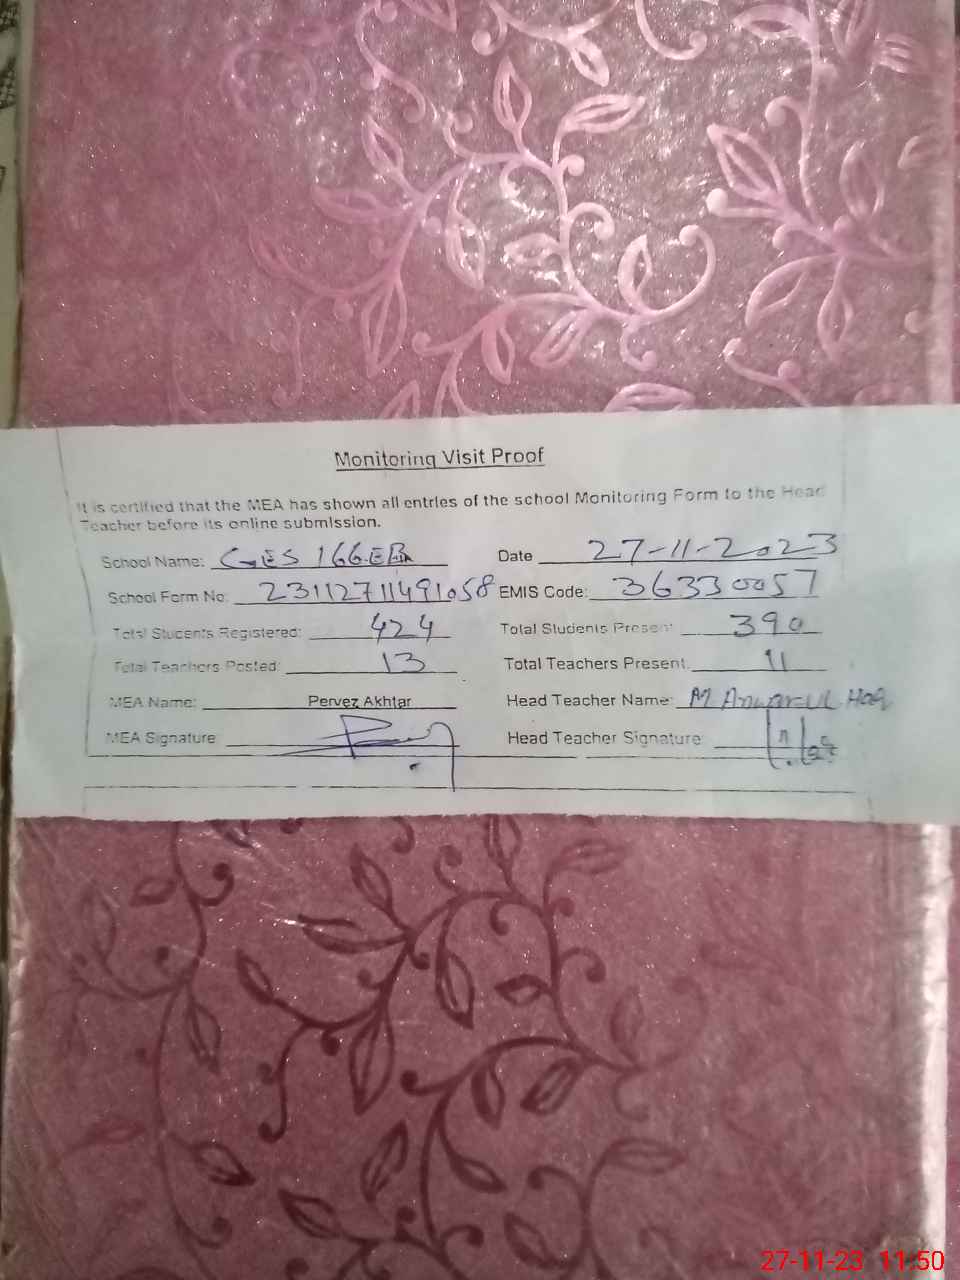 Monitoring Visit Proof
It is certified that the MEA has shown all entries of the school Monitoring Form to the Head
Teacher before its online submission.
School Name: GES 166.EB Date 27-11-2023
School Form No: 23112711491058 EMIS Code: 36330057
Total Students Registered: 424 Total Students Present: 390
Total Teachers Posted: 13 Total Teachers Present: 11
MEA Name: Pervez Akhtar Head Teacher Name: M Anwar-ul Haq
MEA Signature: Head Teacher Signature:
27-11-23 11:50